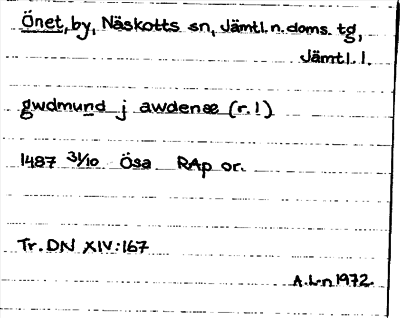 Önet, by, Näskotts sn, Jämtl. n. doms. tg,
Jämtl. l.
gwdmund j awdenæ (r. 1)
1487 31/10 Ösa RAp or.
Tr. DN XIV:167
A. L-n 1972.